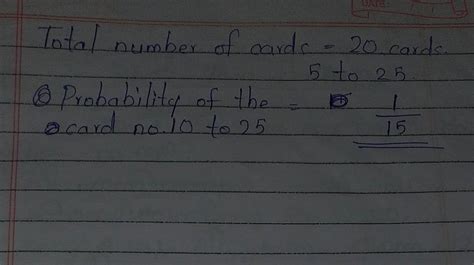 DATE:
Total number of cards = 20 cards.
5 to 25
Probability of the = 1/15
card no. 10 to 25